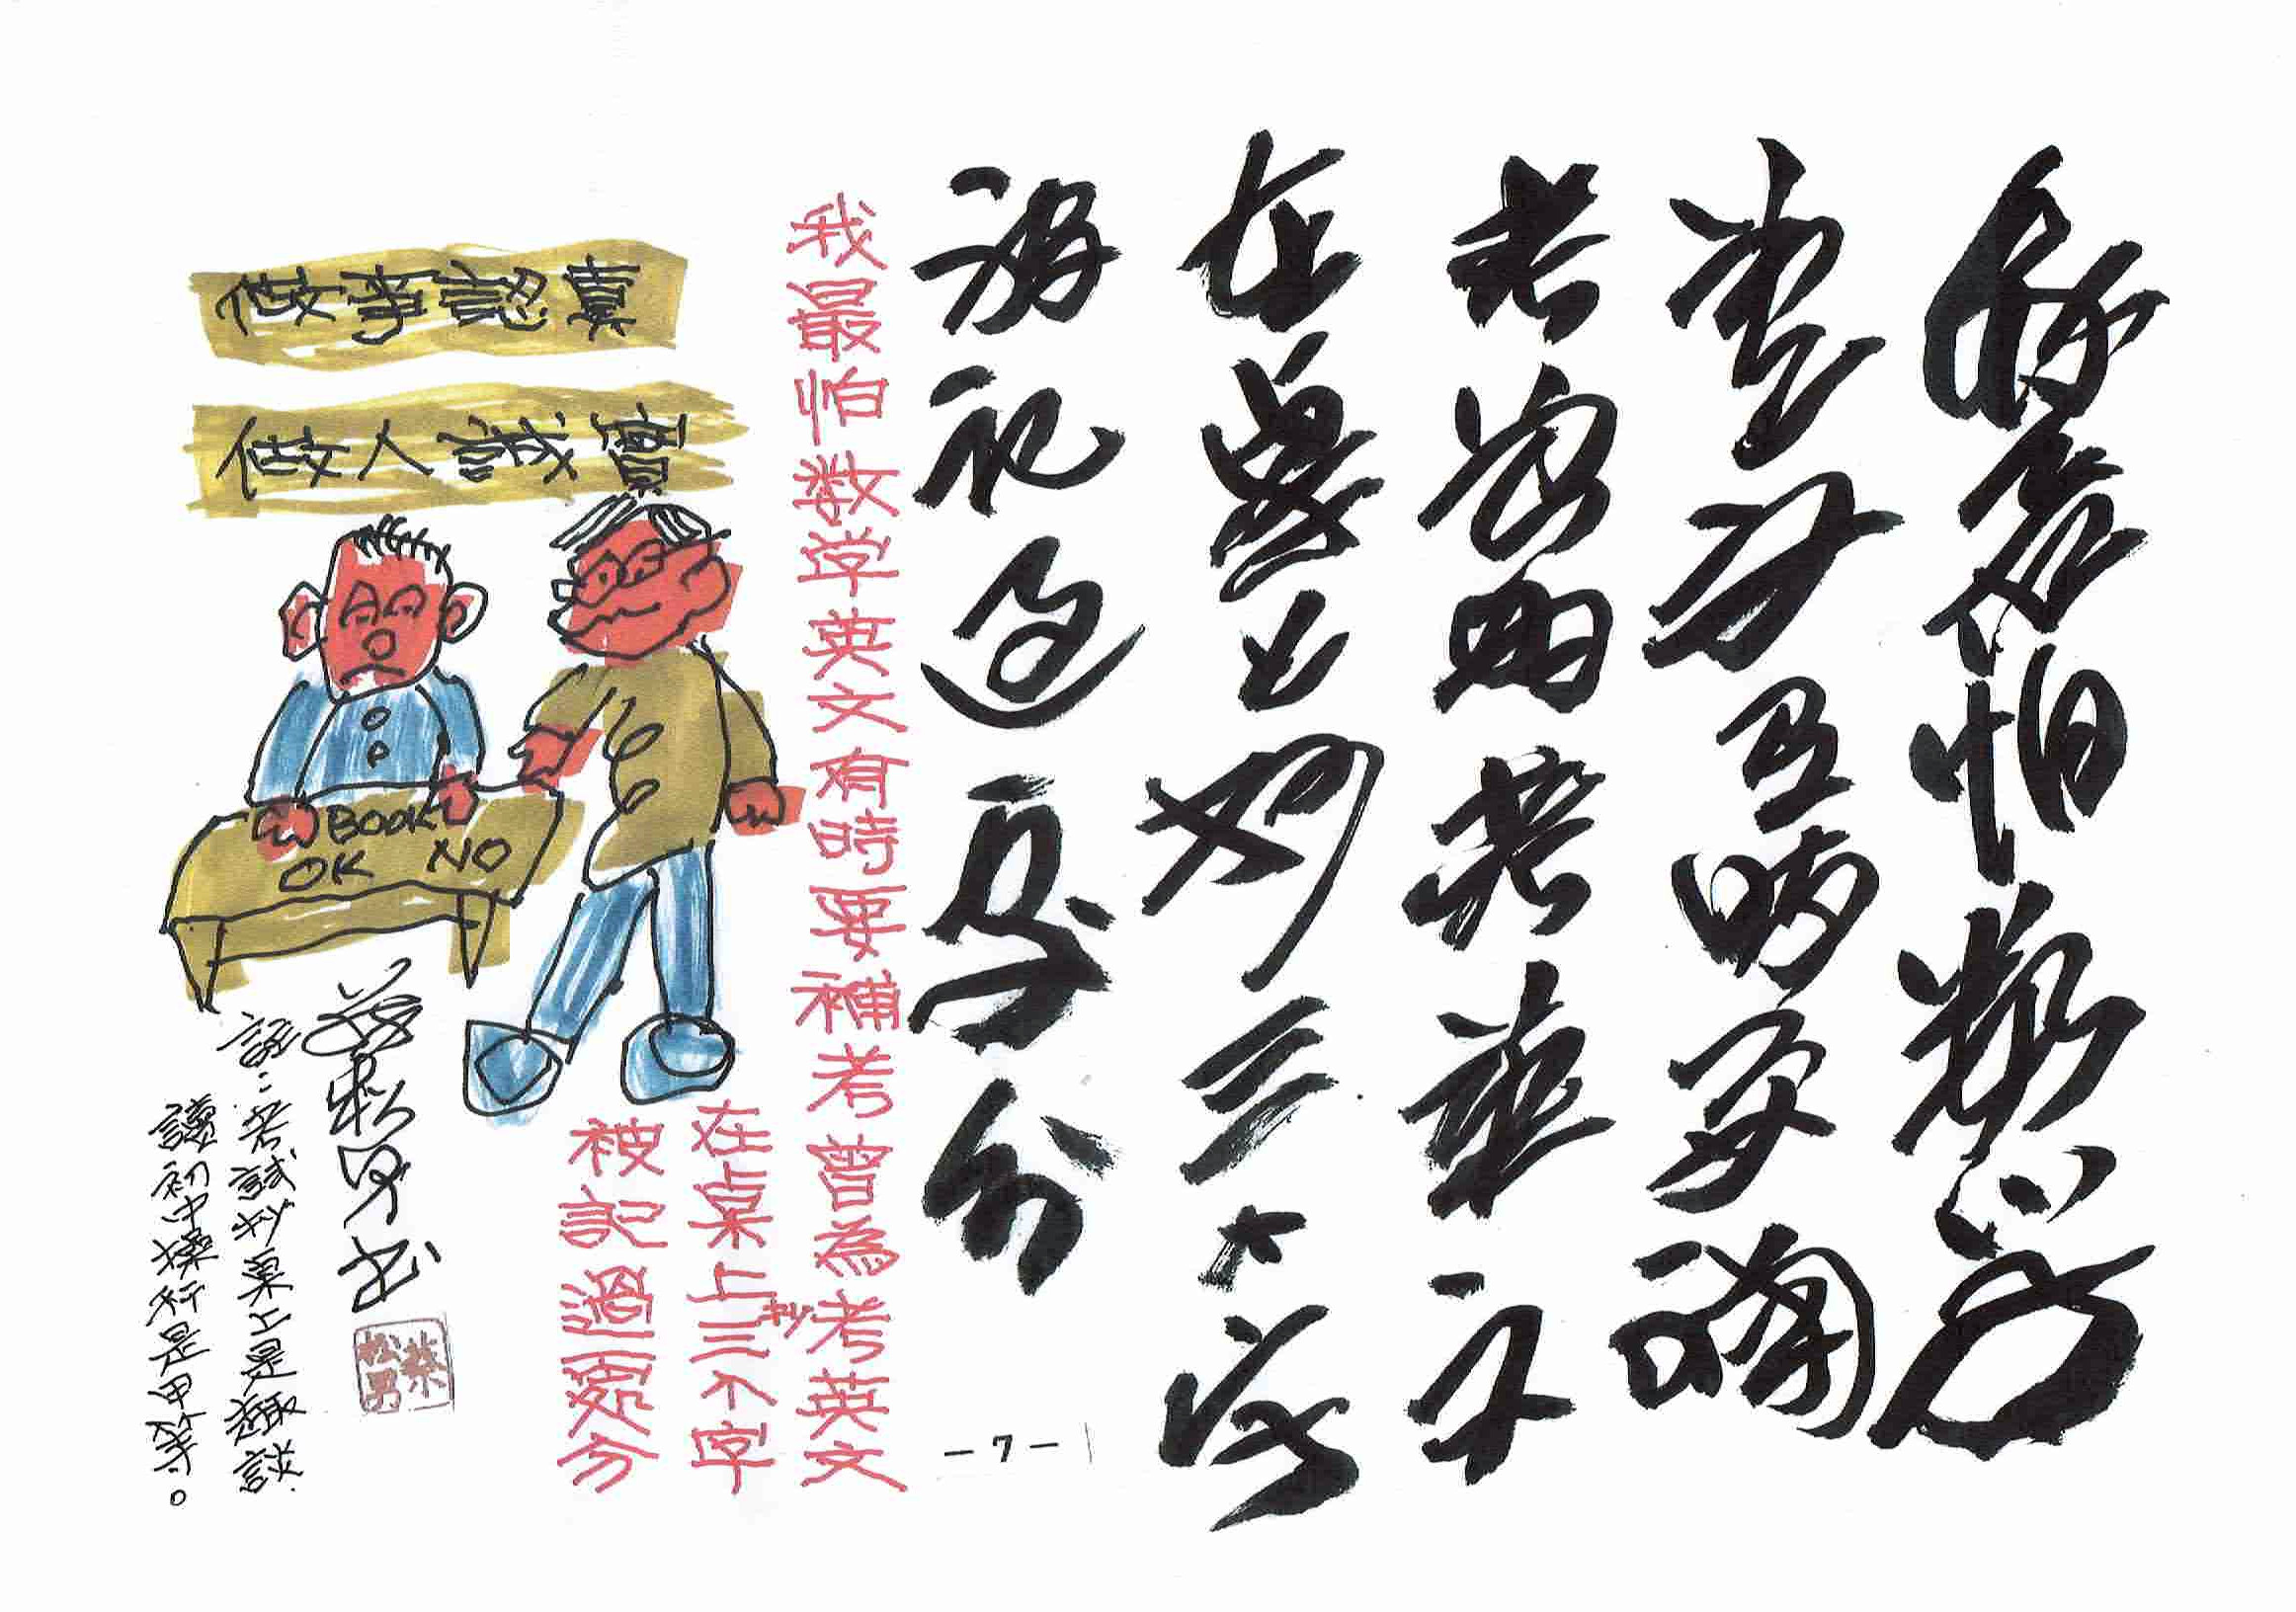 我最怕數學
英文有時要補
考曾為考英文
在桌上抄三个字
被記過處分
我最怕数学英文有時要補考曾為考英文
在桌上抄三个字
被記過處分
做事認真
做人誠實
BOOK
OK NO
蔡松男書
蔡松男
註:考試抄桌上是趣談
讀初中操行是甲等。
-7-